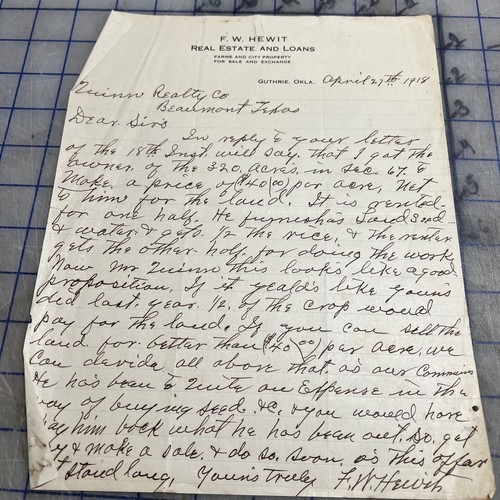 F. W. HEWIT
REAL ESTATE AND LOANS
FARMS AND CITY PROPERTY
FOR SALE AND EXCHANGE
GUTHRIE, OKLA. April 27th 1918
Quinn Realty Co
Beaumont Texas
Dear Sirs
In reply to your letter
of the 18th Inst. will say that I got the
owner of the 320 acres in Sec. 67. to
make a price of ($40.00) per acre, Net
to him for the land. It is rented
for one half. He furnishes Seed
& water & gets 1/2 the rice, & the renter
gets the other half for doing the work
Now Mr Quinn this looks like a good
proposition. If it yealds like yours
did last year 1/2 of the crop would
pay for the land. If you can sell the
land for better than ($40.00) per acre, we
can devide all above that as our
He has been to Quite an Expense in the
way of buying seed &c. & you would have
pay him back what he has been out. So, get
& make a sale. & do so soon as this offer
stand long, Yours truly F. W. Hewit